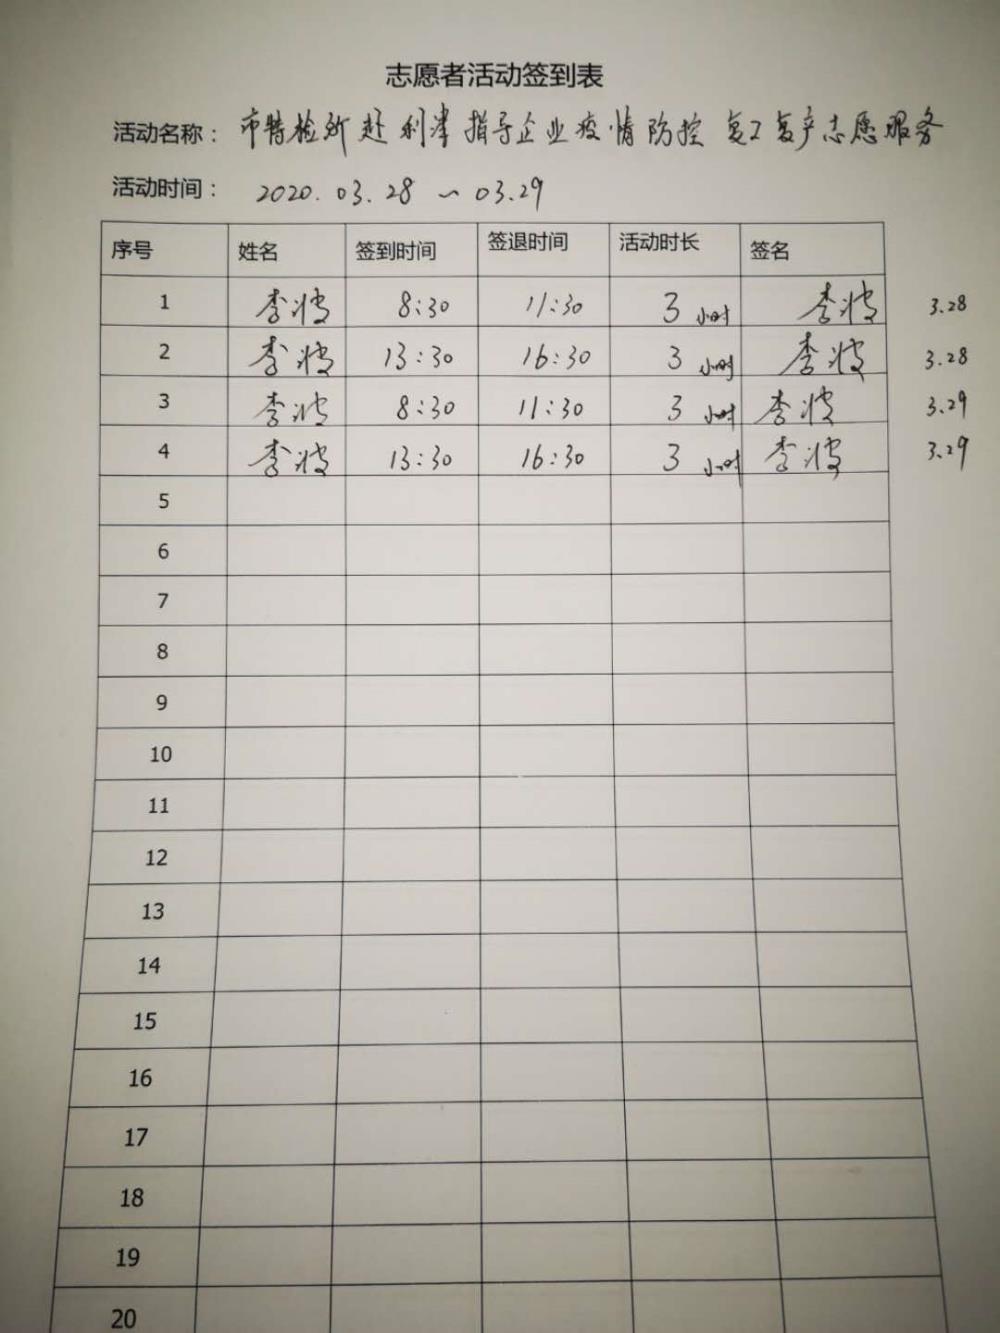 志愿者活动签到表
活动名称：市特检所赴利津指导企业疫情防控复工复产志愿服务
活动时间：2020.03.28～03.29
序号 姓名 签到时间 签退时间 活动时长 签名
1 李波 8:30 11:30 3小时 李波 3.28
2 李波 13:30 16:30 3小时 李波 3.28
3 李波 8:30 11:30 3小时 李波 3.29
4 李波 13:30 16:30 3小时 李波 3.29
5
6
7
8
9
10
11
12
13
14
15
16
17
18
19
20